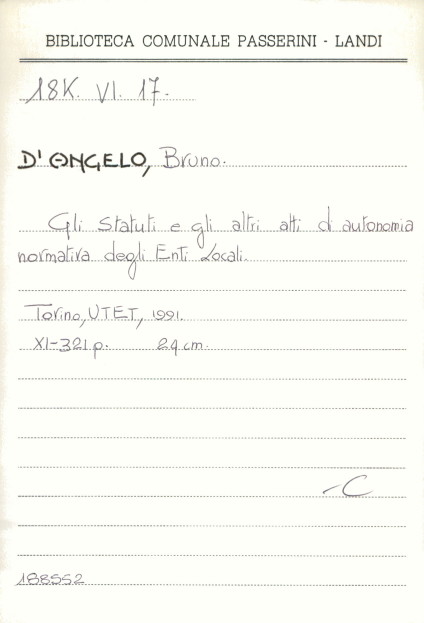 BIBLIOTECA COMUNALE PASSERINI - LANDI
18K. VI. 17.
D'ANGELO, Bruno.
Gli Statuti e gli altri atti di autonomia
normativa degli Enti Locali.
Torino, UTET, 1991.
XI-321 p. 24 cm.
-C
188552